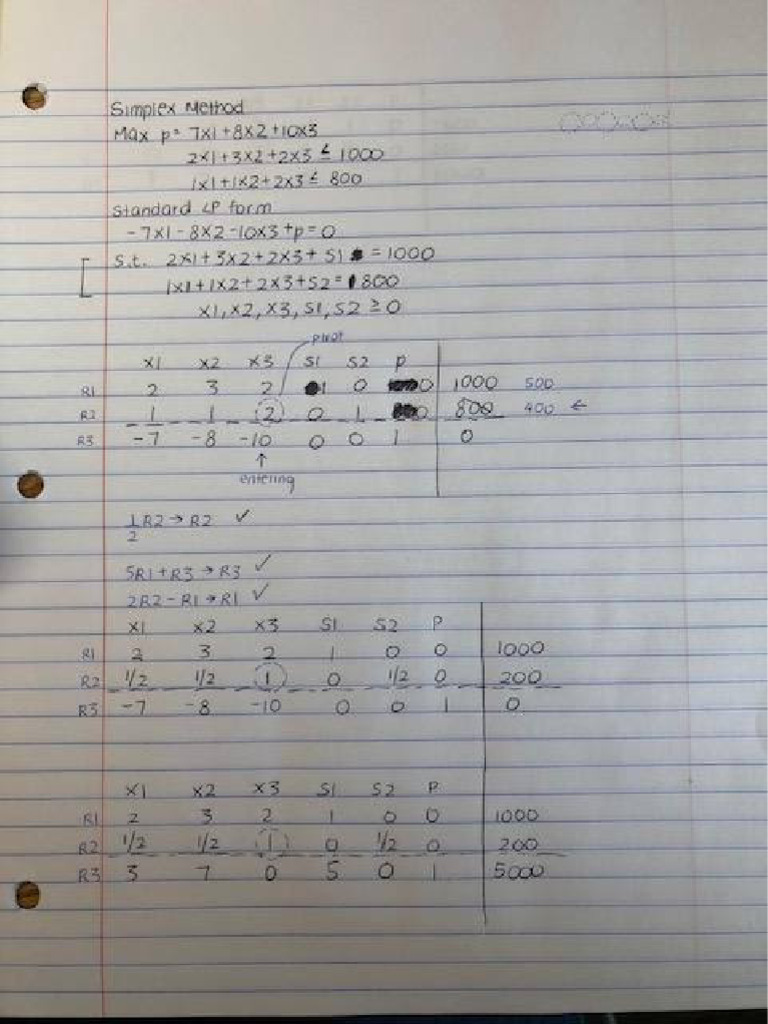 Simplex Method
Max p= 7x1+8x2+10x3
2x1+3x2+2x3 ≤ 1000
1x1+1x2+2x3 ≤ 800
Standard LP form
-7x1-8x2-10x3+p=0
S.t. 2x1+3x2+2x3+S1 =1000
1x1+1x2+2x3+S2=800
x1,x2,x3,S1,S2 ≥ 0
pivot
x1 x2 x3 S1 S2 p
R1 2 3 2 1 0 0 1000 500
R2 1 1 2 0 1 0 800 400 ←
R3 -7 -8 -10 0 0 1 0
↑
entering
1/2 R2 → R2 ✓
5R1+R3 → R3 ✓
2R2-R1 → R1 ✓
x1 x2 x3 S1 S2 P
R1 2 3 2 1 0 0 1000
R2 1/2 1/2 1 0 1/2 0 200
R3 -7 -8 -10 0 0 1 0
x1 x2 x3 S1 S2 P
R1 2 3 2 1 0 0 1000
R2 1/2 1/2 1 0 1/2 0 200
R3 3 7 0 5 0 1 5000